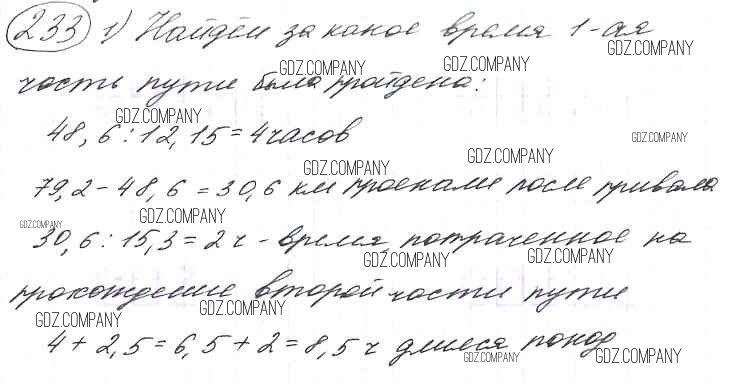 233 1) Найдём за какое время 1-ая
GDZ.COMPANY
GDZ.COMPANY GDZ.COMPANY
часть пути была пройдена:
GDZ.COMPANY
48,6 : 12,15 = 4 часов
GDZ.COMPANY
GDZ.COMPANY GDZ.COMPANY
79,2 - 48,6 = 30,6 км проехали после привала
GDZ.COMPANY GDZ.COMPANY
30,6 : 15,3 = 2 ч - время, потраченное на
GDZ.COMPANY GDZ.COMPANY
прохождение второй части пути
GDZ.COMPANY GDZ.COMPANY
4 + 2,5 = 6,5 + 2 = 8,5 ч длился поход
GDZ.COMPANY GDZ.COMPANY